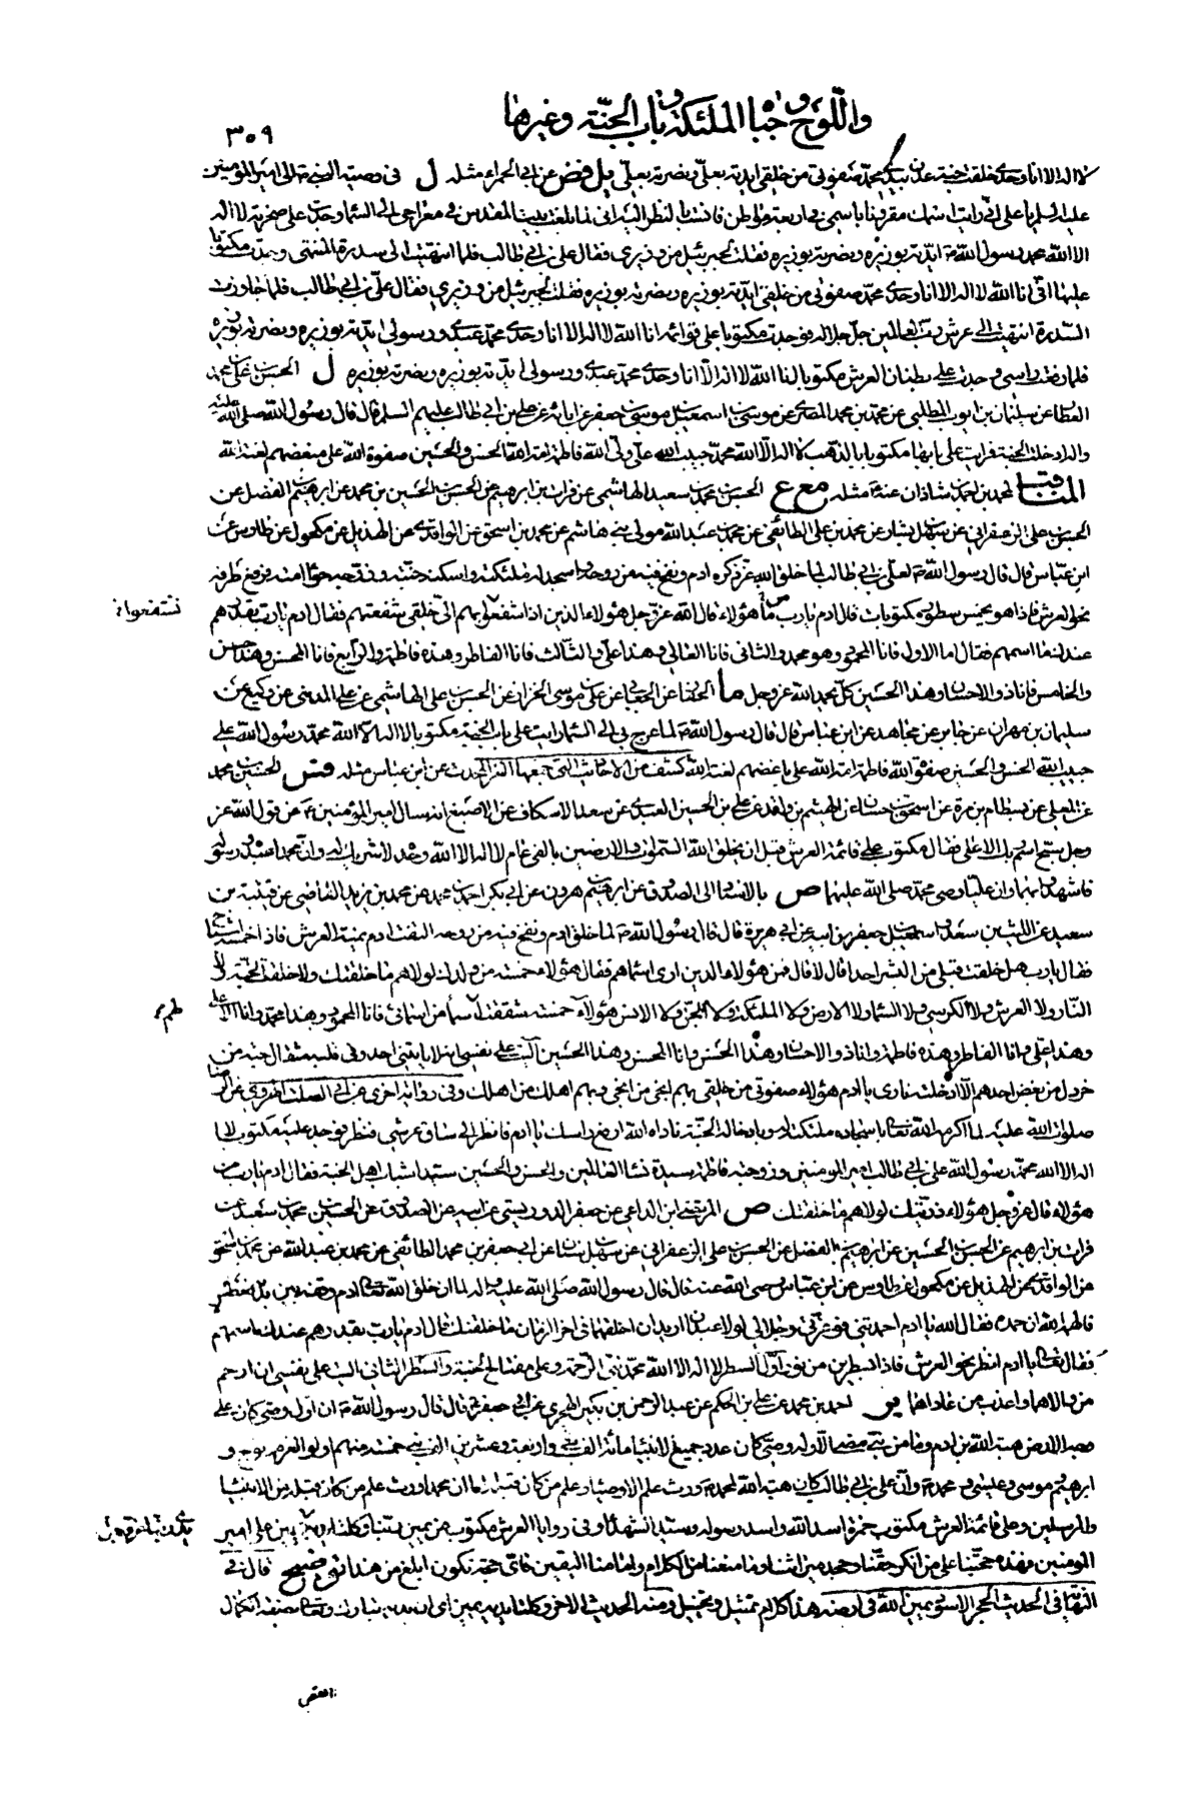 واللوح وجباه الملئكة وباب الجنة وغيرها
٣٥٩
لا اله الا انا وحدى خلقت جنة عدن بيدى محمد صفوتى من خلقى ايدته بعلى ونصرته بعلى يل فض عن ابى الحمراء مثله ل فى وصية النبى ص الى امير المؤمنين
عليه السلم يا على انى رايت اسمك مقرونا باسمى فى اربعة مواطن فانست بالنظر اليه انى لما بلغت بيت المقدس فى معراجى الى السماء وجدت على صخرته لا اله
الا الله محمد رسول الله ص ايدته بوزيره ونصرته بوزيره فقلت لجبرئيل من وزيرى فقال على بن ابى طالب فلما انتهيت الى سدرة المنتهى وجدت مكتوبا
عليها انى انا الله لا اله الا انا وحدى محمد صفوتى من خلقى ايدته بوزيره ونصرته بوزيره فقلت لجبرئيل من وزيرى فقال على بن ابى طالب فلما جاوزت
السدرة انتهيت الى عرش رب العالمين جل جلاله فوجدت مكتوبا على قوائمه انا الله لا اله الا انا وحدى محمد عبدى ورسولى ايدته بوزيره ونصرته بوزيره
فلما رفعت راسى وجدت على بطنان العرش مكتوبا انا الله لا اله الا انا وحدى محمد عبدى ورسولى ايدته بوزيره ونصرته بوزيره ل الحسن بن على بن محمد
العطار عن سليمان بن ايوب المطلبى عن محمد بن محمد المصرى عن موسى بن اسمعيل بن موسى بن جعفر عن ابائه عن على بن ابى طالب عليهم السلم قال قال رسول الله صلى الله عليه
واله ادخلت الجنة فرايت على بابها مكتوبا بالذهب لا اله الا الله محمد حبيب الله على ولى الله فاطمة امة الله الحسن والحسين صفوة الله على مبغضهم لعنة الله
المناقب لمحمد بن احمد بن شاذان عنه ع مثله مع ع الحسن بن محمد بن سعيد الهاشمى عن فرات بن ابرهيم عن الحسن بن الحسين بن محمد عن ابرهيم بن الفضل عن
الحسن بن على الزعفرانى عن سهل بن بشار عن محمد بن على الطائفى عن محمد بن عبد الله مولى بنى هاشم عن محمد بن اسحق عن الواقدى عن الهذيل عن مكحول عن طاوس عن
ابن عباس قال قال رسول الله ص لعلى بن ابى طالب لما خلق الله عز ذكره ادم ونفخ فيه من روحه واسجد له ملئكته واسكنه جنته وزوجه حوا امته فرفع طرفه
نحو العرش فاذا هو بخمس سطور مكتوبات قال ادم يارب من هؤلاء قال الله عز وجل هؤلاء الذين اذا تشفعوا بهم الى خلقى شفعتهم فقال ادم يارب بقدرهم
نستشفعوا خ
عندك ما اسمهم فقال اما الاول فانا المحمود وهو محمد والثانى فانا العالى وهذا على والثالث فانا الفاطر وهذه فاطمة والرابع فانا المحسن وهذا حسن
والخامس فانا ذو الاحسان وهذا الحسين كل يحمد الله عز وجل ما الحفار عن الجعابى عن على بن موسى الخزاز عن الحسن بن على الهاشمى عن على المدينى عن وكيع عن
سليمان بن مهران عن جابر عن مجاهد عن ابن عباس قال قال رسول الله ص لما عرج بى الى السماء رايت على باب الجنة مكتوبا لا اله الا الله محمد رسول الله على
حبيب الله الحسن والحسين صفوة الله فاطمة امة الله على باغضهم لعنة الله كشف من الاحاديث التى جمعها العز المحدث عن ابن عباس مثله فس الحسين بن محمد
عن المعلى عن بسطام بن مرة عن اسحق بن حسان عن الهيثم بن واقد عن على بن الحسين العبدى عن سعد الاسكاف عن الاصبغ انه سال امير المؤمنين ع عن قول الله عز
وجل سبح اسم ربك الاعلى فقال مكتوب على قائمة العرش قبل ان يخلق الله السموات والارضين بالفى عام لا اله الا الله وحده لا شريك له وان محمدا عبده ورسوله
فاشهدوا بهما وان عليا وصى محمد صلى الله عليهما ص بالاسناد الى الصدوق عن ابرهيم بن هرون عن ابى بكر احمد بن محمد عن محمد بن يزيد القاضى عن قتيبة بن
سعيد عن الليث بن سعد واسمعيل بن جعفر عن ابيه عن ابى هريرة قال قال رسول الله ص لما خلق ادم ونفخ فيه من روحه التفت ادم يمنة العرش فاذا خمسة اشباح
فقال يارب هل خلقت قبلى من البشر احدا قال لا قال فمن هؤلاء الذين ارى اسماءهم فقال هؤلاء خمسة من ولدك لولاهم ما خلقتك ولا خلقت الجنة ولا
النار ولا العرش ولا الكرسى ولا السماء ولا الارض ولا الملئكة ولا الجن ولا الانس هؤلاء خمسة شققت لهم اسما من اسمائى فانا المحمود وهذا محمد وانا الاعلى
وهذا على وانا الفاطر وهذه فاطمة وانا ذو الاحسان وهذا الحسن وانا المحسن وهذا الحسين اليت على نفسى انه لا ياتينى احد وفى قلبه مثقال حبة من
خردل من بغض احدهم الا ادخلته نارى يا ادم هؤلاء صفوتى من خلقى بهم انجى من انجى وبهم اهلك من اهلك وفى رواية اخرى عن ابى الصلت الهروى عن الرضا
صلوات الله عليه لما اكرمه الله تعالى باسجاده ملئكته له وبادخاله الجنة ناداه الله ارفع راسك يا ادم فانظر الى ساق عرشى فنظر فوجد عليه مكتوبا لا
اله الا الله محمد رسول الله على بن ابى طالب امير المؤمنين وزوجته فاطمة سيدة نساء العالمين والحسن والحسين سيدا شباب اهل الجنة فقال ادم يارب من
هؤلاء قال عز وجل هؤلاء ذريتك لولاهم ما خلقتك ص المرتضى ابن الداعى عن جعفر الدوريستى عن ابيه عن الصدوق عن الحسن بن محمد بن سعيد عن
فرات بن ابرهيم عن الحسن بن الحسين عن ابرهيم بن الفضل عن الحسن بن على الزعفرانى عن سهل بن سنان عن ابى جعفر بن محمد الطائفى عن محمد بن عبد الله عن محمد بن اسحق
عن الواقدى عن الهذيل عن مكحول عن طاوس عن ابن عباس رضى الله عنه قال قال رسول الله صلى الله عليه واله لما ان خلق الله تعالى ادم وقفه بين يديه فعطس
فالهمه الله ان حمده فقال الله يا ادم احمدتنى فوعزتى وجلالى لولا عبدان اريد ان اخلقهما فى اخر الزمان ما خلقتك قال ادم يارب بقدرهم عندك ما اسمهم
فقال تعالى يا ادم انظر نحو العرش فاذا بسطرين من نور اول السطر لا اله الا الله محمد نبى الرحمة وعلى مفتاح الجنة والسطر الثانى اليت على نفسى ان ارحم
من والاهما واعذب من عاداهما ير احمد بن محمد عن على بن الحكم عن عبد الرحمن بن بكير الهجرى عن ابى جعفر ع قال قال رسول الله ص ان اول وصى كان على
وجه الارض هبة الله بن ادم وما من نبى مضى الا وله وصى كان عدد جميع الانبياء مائة الف نبى واربعة وعشرين الف نبى خمسة منهم اولو العزم نوح و
ابرهيم وموسى وعيسى ومحمد ص وان على بن ابى طالب كان هبة الله لمحمد ص ورث علم الاوصياء وعلم من كان قبله اما ان محمدا ورث علم من كان قبله من الانبياء
والمرسلين وعلى قائمة العرش مكتوب حمزة اسد الله واسد رسوله وسيد الشهداء وفى زوايا العرش مكتوب عن يمين ربنا وكلتا يديه يمين على امير
المومنين فهذه حجتنا على من انكر حقنا وجحد ميراثنا وما منعنا من الكلام وامامنا اليقين فاى حجة تكون ابلغ من هذا توضيح قال فى
النهاية فى الحديث الحجر الاسود يمين الله فى ارضه هذا كلام تمثيل وتخييل ومنه الحديث الاخر وكلتا يديه يمين اى ان يديه تبارك وتعالى بصفة الكمال